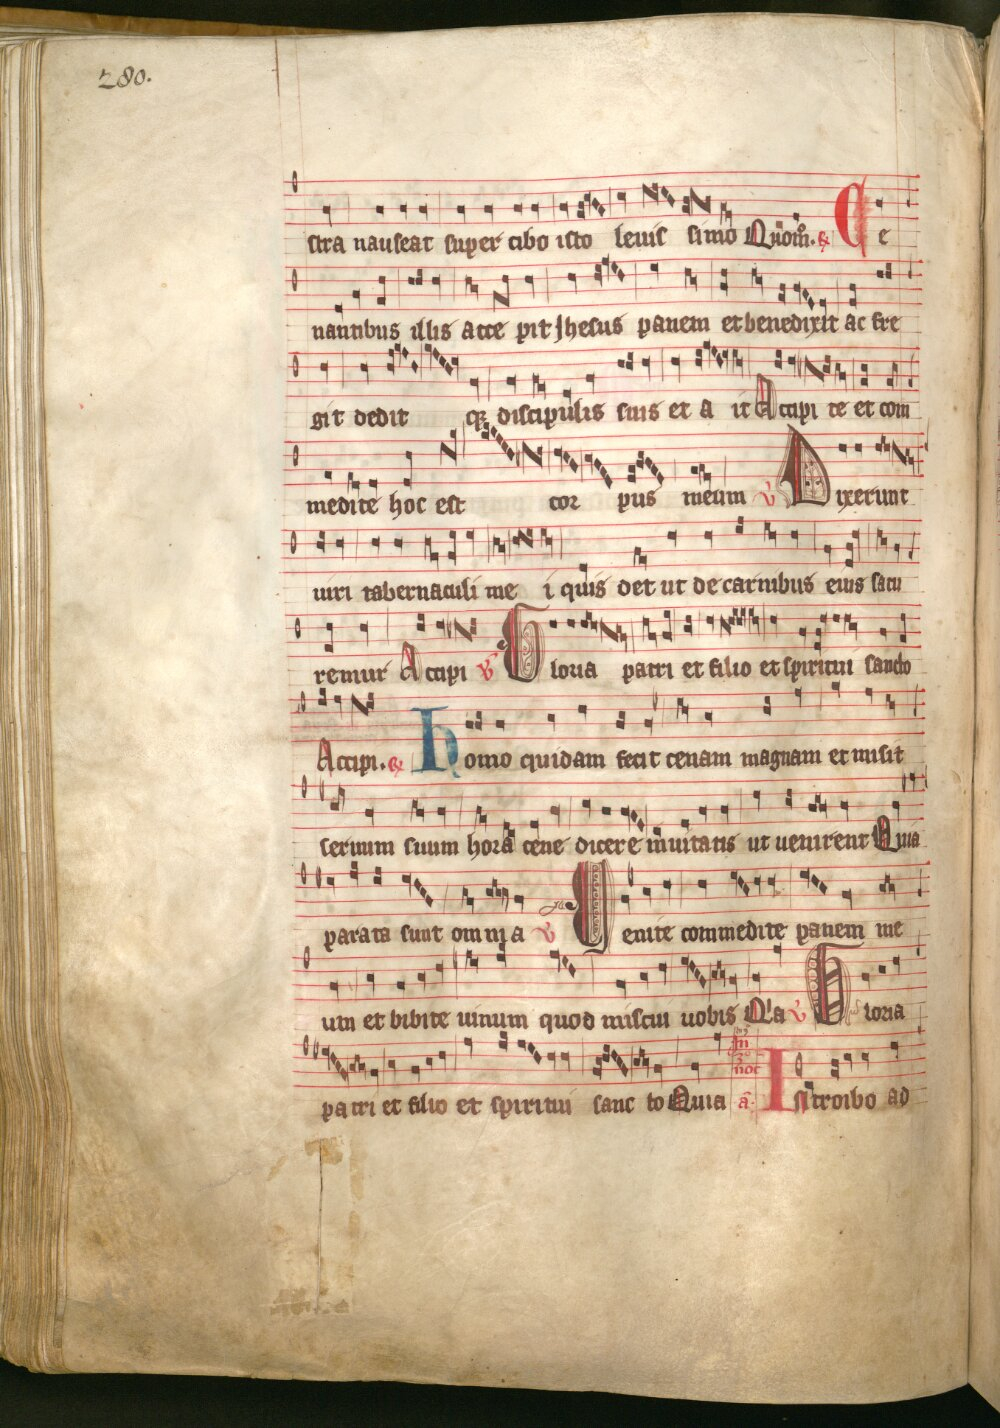 280.
stra nauseat super cibo isto levis simo Quom. R Ce
nantibus illis acce pit Jhesus panem et benedixit ac fre
git dedit q discipulis suis et a it Accipi te et com
medite hoc est cor pus meum V Dixerunt
viri tabernaculi me i quis det ut de carnibus eius satu
remur Accipi V Gloria patri et filio et spiritui sancto
Accipi. R Homo quidam fecit cenam magnam et misit
servum suum hora cene dicere invitatis ut venirent Quia
parata sunt omnia V Venite commedite panem me
um et bibite vinum quod miscui vobis Q'a V Gloria
patri et filio et spiritui sanc to Quia In 3 noct a. Introibo ad